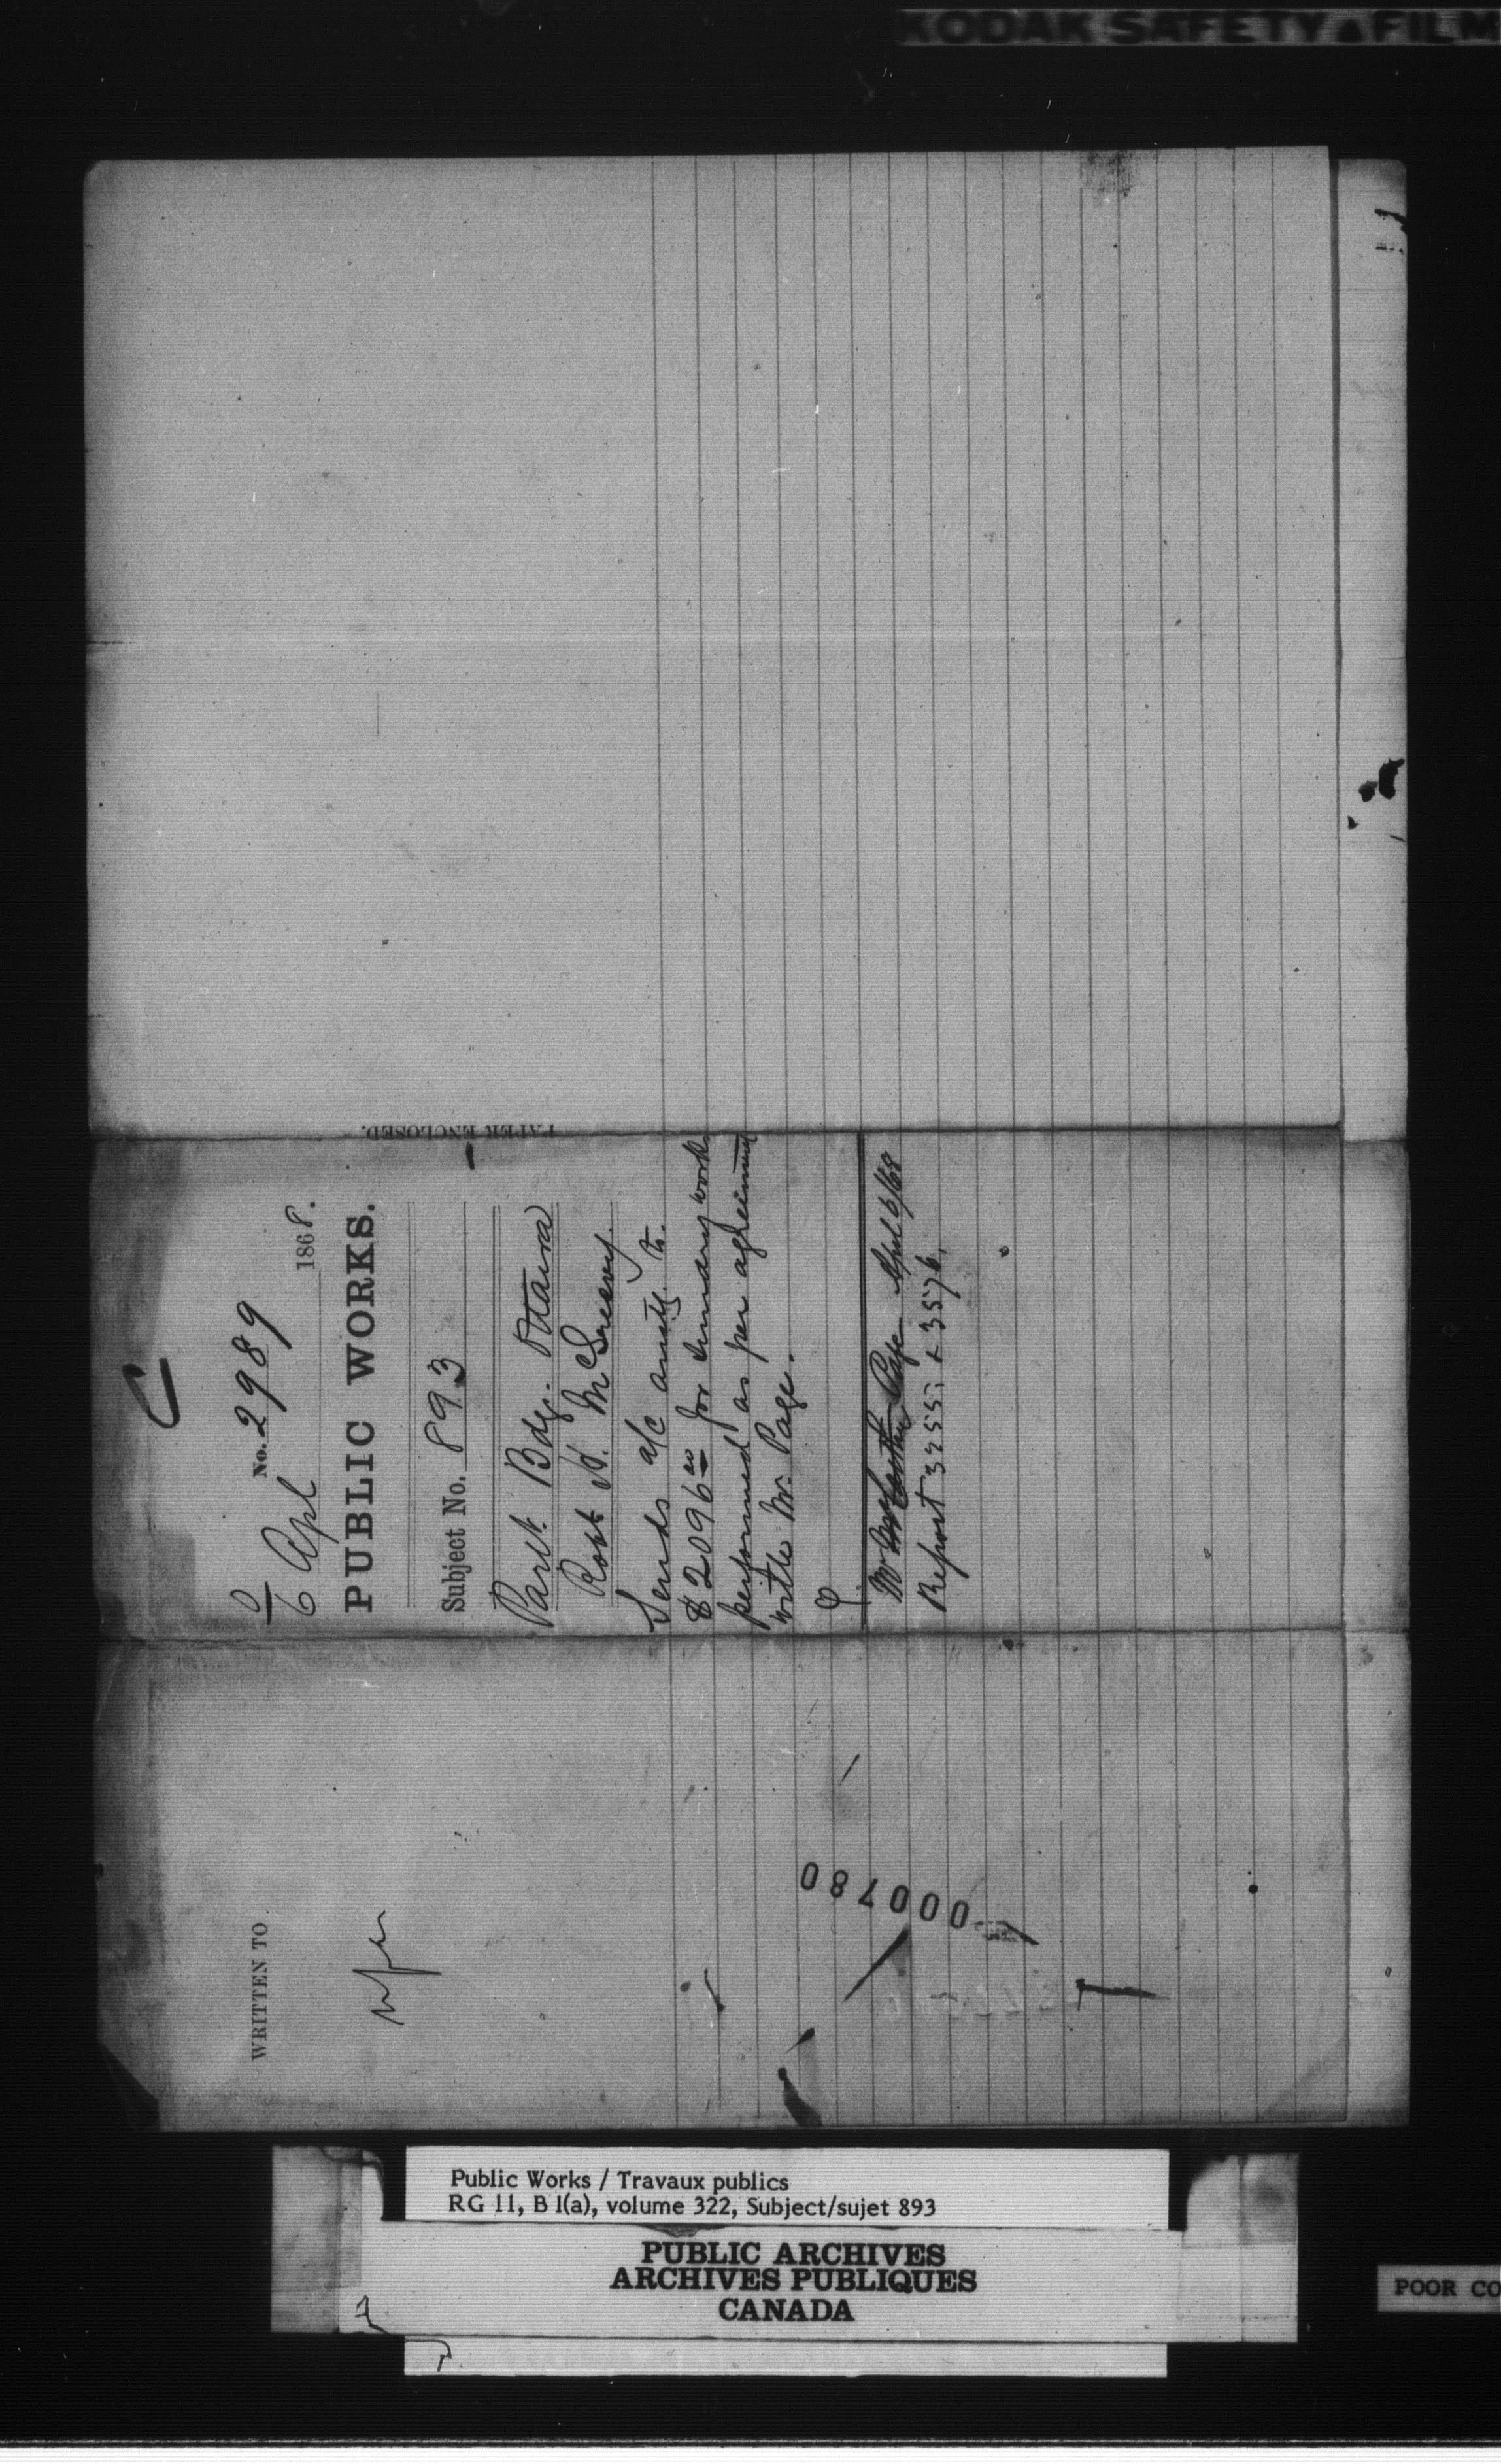 KODAK SAFETY ▲ FILM
C
No. 2989
6 Apl 1868.
PUBLIC WORKS.
Subject No. 893
Parlt. Bdg. Ottawa
Robt. H. McGreevy.
Sends a/c amtg. to
$2096.00 for sundry works
performed as per agreement
with Mr. Page.
Mr Page April 6/68
Report 3255; & 3576.
PAPER ENCLOSED.
WRITTEN TO
000780
Public Works / Travaux publics
RG 11, B 1(a), volume 322, Subject/sujet 893
PUBLIC ARCHIVES
ARCHIVES PUBLIQUES
CANADA
POOR CO